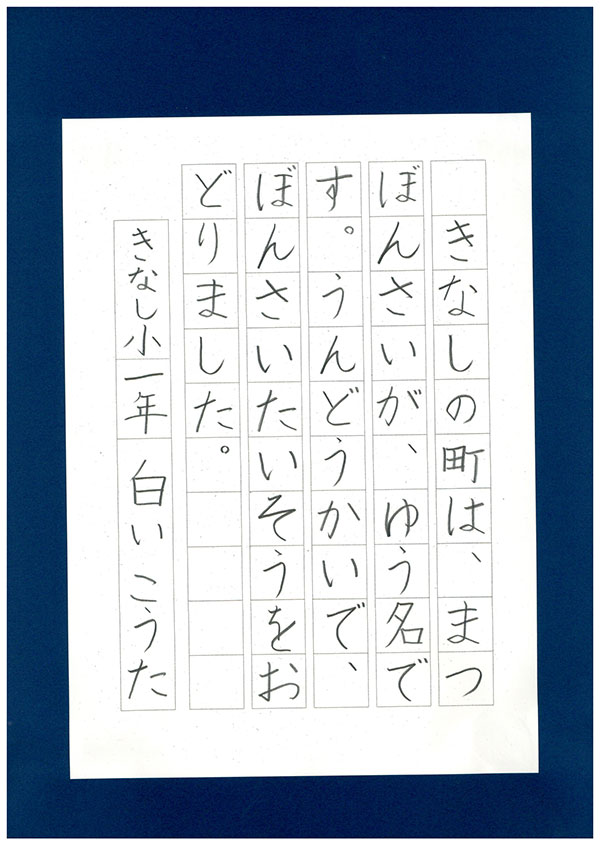 きなしの町は、まつ
ぼんさいが、ゆう名で
す。うんどうかいで、
ぼんさいたいそうをお
どりました。
きなし小一年 白い こうた